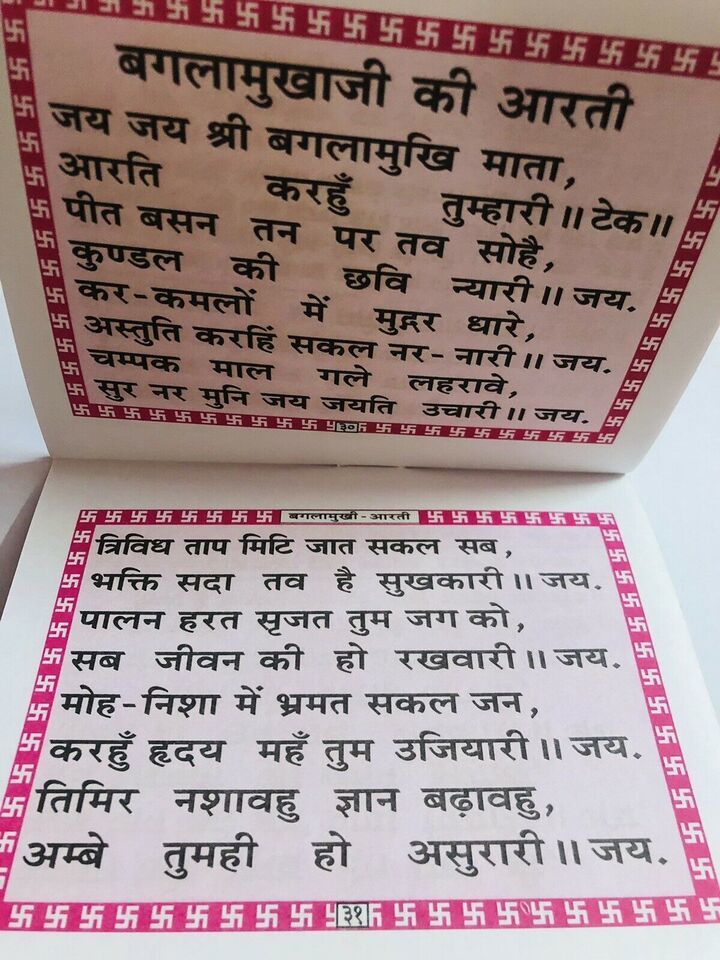 बगलामुखाजी की आरती
जय जय श्री बगलामुखि माता,
आरति करहुँ तुम्हारी॥ टेक॥
पीत बसन तन पर तव सोहै,
कुण्डल की छवि न्यारी॥ जय.
कर-कमलों में मुद्गर धारे,
अस्तुति करहिं सकल नर-नारी॥ जय.
चम्पक माल गले लहरावे,
सुर नर मुनि जय जयति उचारी॥ जय.
३०
बगलामुखी-आरती
त्रिविध ताप मिटि जात सकल सब,
भक्ति सदा तव है सुखकारी॥ जय.
पालन हरत सृजत तुम जग को,
सब जीवन की हो रखवारी॥ जय.
मोह-निशा में भ्रमत सकल जन,
करहुँ हृदय महँ तुम उजियारी॥ जय.
तिमिर नशावहु ज्ञान बढ़ावहु,
अम्बे तुमही हो असुरारी॥ जय.
३१